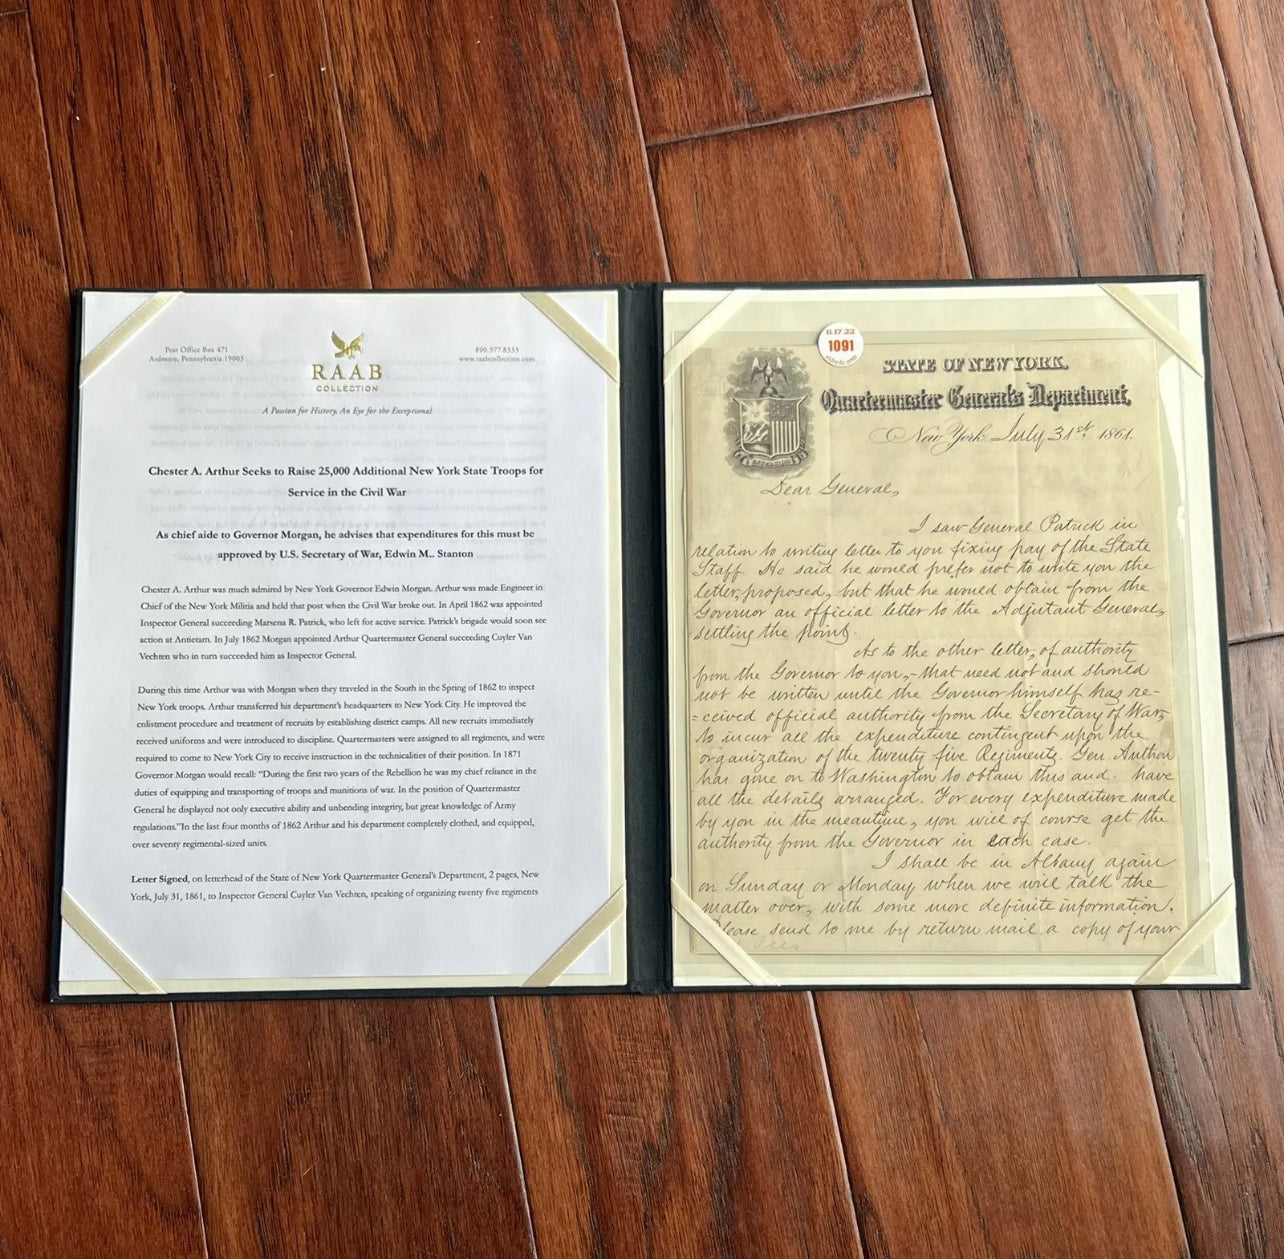 Post Office Box 471
Ardmore, Pennsylvania 19003
800.977.8333
www.raabcollection.com
RAAB
COLLECTION
A Passion for History, An Eye for the Exceptional
Chester A. Arthur Seeks to Raise 25,000 Additional New York State Troops for
Service in the Civil War
As chief aide to Governor Morgan, he advises that expenditures for this must be
approved by U.S. Secretary of War, Edwin M.. Stanton
Chester A. Arthur was much admired by New York Governor Edwin Morgan. Arthur was made Engineer in
Chief of the New York Militia and held that post when the Civil War broke out. In April 1862 was appointed
Inspector General succeeding Marsena R. Patrick, who left for active service. Patrick's brigade would soon see
action at Antietam. In July 1862 Morgan appointed Arthur Quartermaster General succeeding Cuyler Van
Vechten who in turn succeeded him as Inspector General.
During this time Arthur was with Morgan when they traveled in the South in the Spring of 1862 to inspect
New York troops. Arthur transferred his department's headquarters to New York City. He improved the
enlistment procedure and treatment of recruits by establishing district camps. All new recruits immediately
received uniforms and were introduced to discipline. Quartermasters were assigned to all regiments, and were
required to come to New York City to receive instruction in the technicalities of their position. In 1871
Governor Morgan would recall: "During the first two years of the Rebellion he was my chief reliance in the
duties of equipping and transporting of troops and munitions of war. In the position of Quartermaster
General he displayed not only executive ability and unbending integrity, but great knowledge of Army
regulations."In the last four months of 1862 Arthur and his department completely clothed, and equipped,
over seventy regimental-sized units.
Letter Signed, on letterhead of the State of New York Quartermaster General's Department, 2 pages, New
York, July 31, 1861, to Inspector General Cuyler Van Vechten, speaking of organizing twenty five regiments
11 17 22
1091
STATE OF NEW YORK.
Quartermaster General's Department,
New York July 31st 1861.
Dear General,
I saw General Patrick in
relation to writing letter to you fixing pay of the State
Staff. He said he would prefer not to write you the
letter, proposed, but that he would obtain from the
Governor an official letter to the Adjutant General,
settling the point.
As to the other letter, of authority
from the Governor to you,- that need not and should
not be written until the Governor himself has re-
=ceived official authority from the Secretary of War,
to incur all the expenditure contingent upon the
organization of the twenty five Regiments. Gen. Arthur
has gone on to Washington to obtain this and have
all the details arranged. For every expenditure made
by you in the meantime, you will of course get the
authority from the Governor in each case.
I shall be in Albany again
on Sunday or Monday when we will talk the
matter over, with some more definite information.
Please send to me by return mail a copy of your